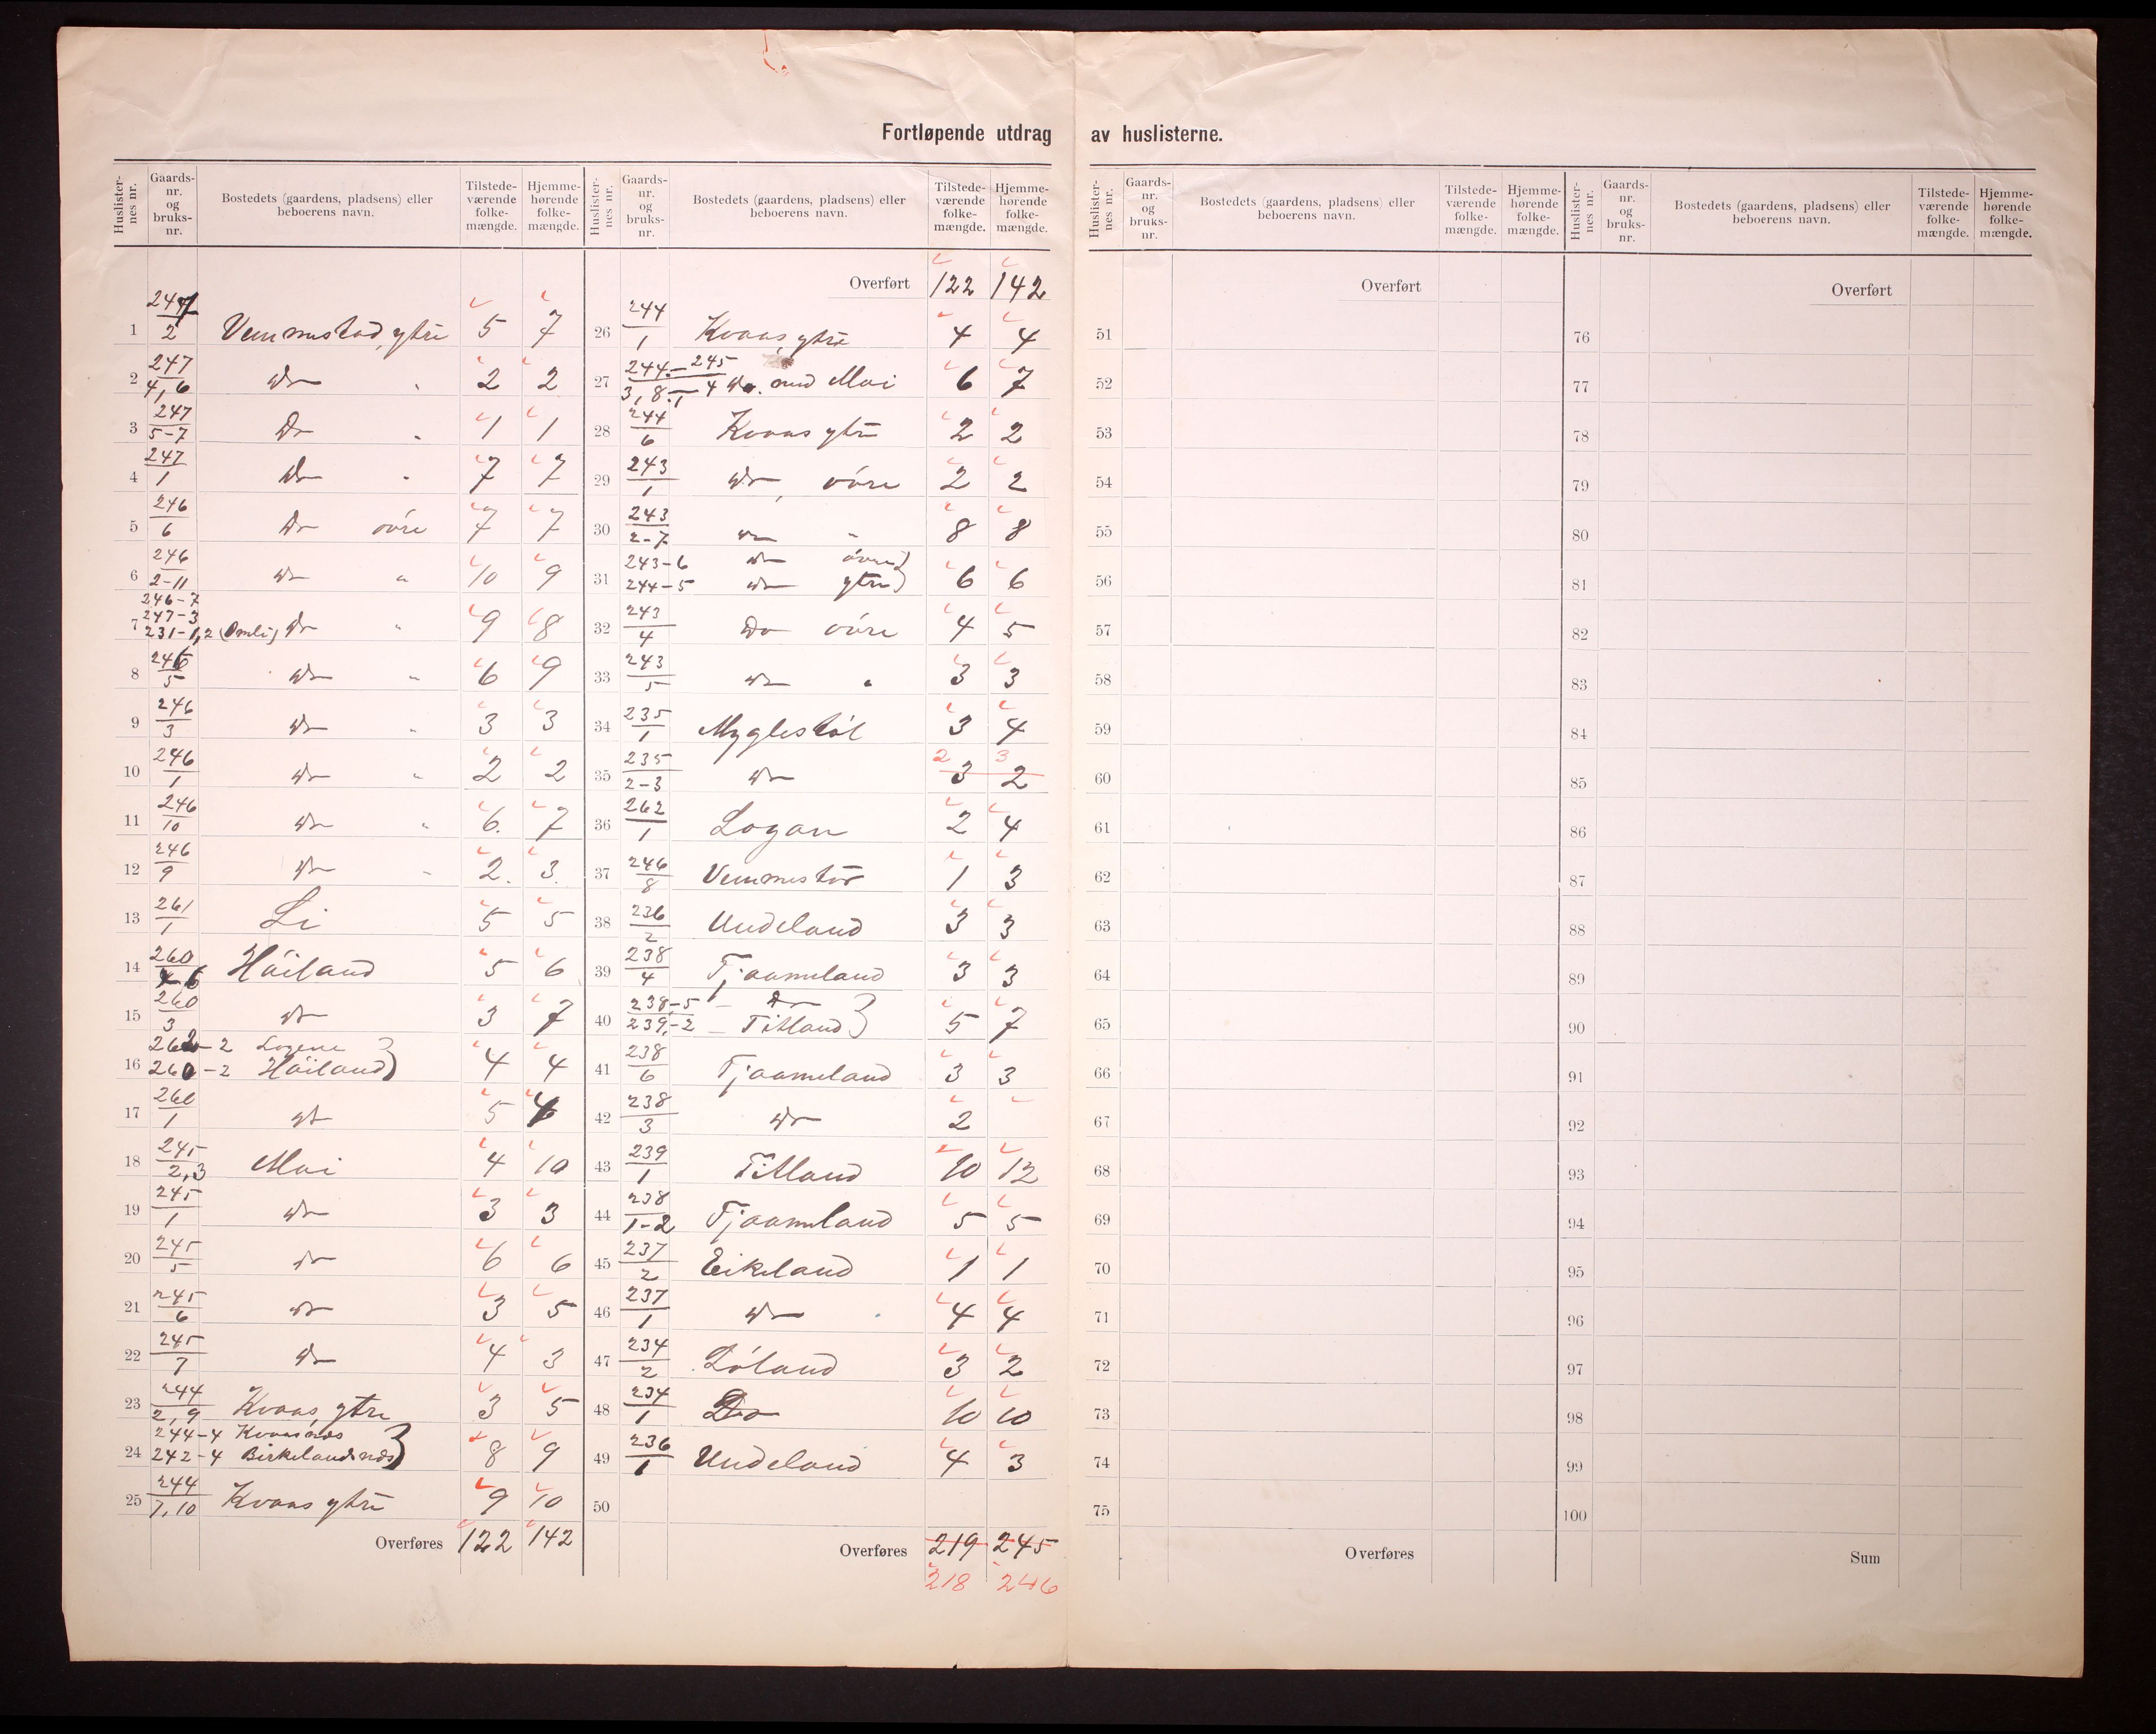 Fortløpende utdrag av huslisterne.
Huslisternes nr. Gaards-nr. og bruks-nr. Bostedets (gaardens, pladsens) eller beboerens navn. Tilstedeværende folkemængde. Hjemmehørende folkemængde.
1 247/2 Vemmestad, ytre 5 7
2 247/4,6 Do " 2 2
3 247/5-7 Do " 1 1
4 247/1 Do " 7 7
5 246/6 Do övre 7 7
6 246/2-11 Do " 10 9
7 246-7 247-3 231-1,2 (Omli) Do " 9 8
8 246/5 Do " 6 9
9 246/3 Do " 3 3
10 246/1 Do " 2 2
11 246/10 Do " 6 7
12 246/9 Do " 2 3
13 261/1 Li 5 5
14 260 Höiland 5 6
15 260/3 Do 3 7
16 262-2 Logene
260-2 Höiland } 4 4
17 260/1 Do 5
18 245/2,3 Moi 4 10
19 245/1 Do 3 3
20 245/5 Do 6 6
21 245/6 Do 3 5
22 245/7 Do 4 3
23 244/2,9 Kvaas, ytre 3 5
24 244-4 Kvaasnæs
242-4 Birkelandsnæs } 8 9
25 244/7,10 Kvaas ytre 9 10
Overføres 122 142
Huslisternes nr. Gaards-nr. og bruks-nr. Bostedets (gaardens, pladsens) eller beboerens navn. Tilstedeværende folkemængde. Hjemmehørende folkemængde.
Overført 122 142
26 244/1 Kvaas, ytre 4 4
27 244-245/3,8,-4 Do. med Moi 6 7
28 244/6 Kvaas ytre 2 2
29 243/1 Do, övre 2 2
30 243/2-7 Do " 8 8
31 243-6 Do övre
244-5 Do ytre } 6 6
32 243/4 Do övre 4 5
33 243/5 Do " 3 3
34 235/1 Myglestöl 3 4
35 235/2-3 Do 3 2 2 3
36 262/1 Logan 2 4
37 246/8 Vemmestad 1 3
38 236/2 Undeland 3 3
39 238/4 Tjaameland 3 3
40 238-5 - Do
239-2 - Titland } 5 7
41 238/6 Tjaameland 3 3
42 238/3 Do 2
43 239/1 Titland 10 12
44 238/1-2 Tjaameland 5 5
45 237/2 Eikeland 1 1
46 237/1 Do 4 4
47 234/2 Löland 3 2
48 234/1 Do 10 10
49 236/1 Undeland 4 3
50
Overføres 219 245
218 246
Huslisternes nr. Gaards-nr. og bruks-nr. Bostedets (gaardens, pladsens) eller beboerens navn. Tilstedeværende folkemængde. Hjemmehørende folkemængde.
Overført
51
52
53
54
55
56
57
58
59
60
61
62
63
64
65
66
67
68
69
70
71
72
73
74
75
Overføres
Huslisternes nr. Gaards-nr. og bruks-nr. Bostedets (gaardens, pladsens) eller beboerens navn. Tilstedeværende folkemængde. Hjemmehørende folkemængde.
Overført
76
77
78
79
80
81
82
83
84
85
86
87
88
89
90
91
92
93
94
95
96
97
98
99
100
Sum